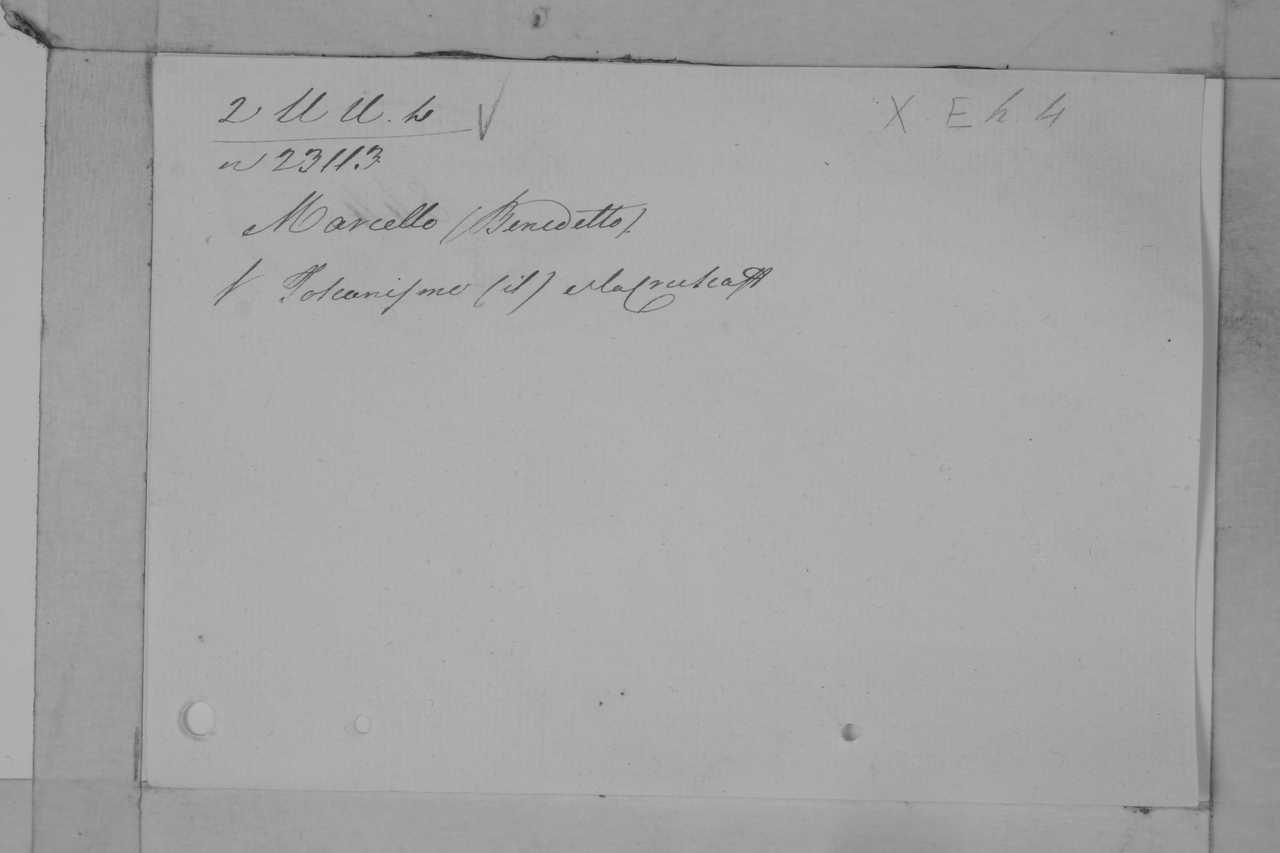 2 U U. h X E h 4
n 23113
Marcello (Benedetto)
Toscanismo (il) e la Crusca